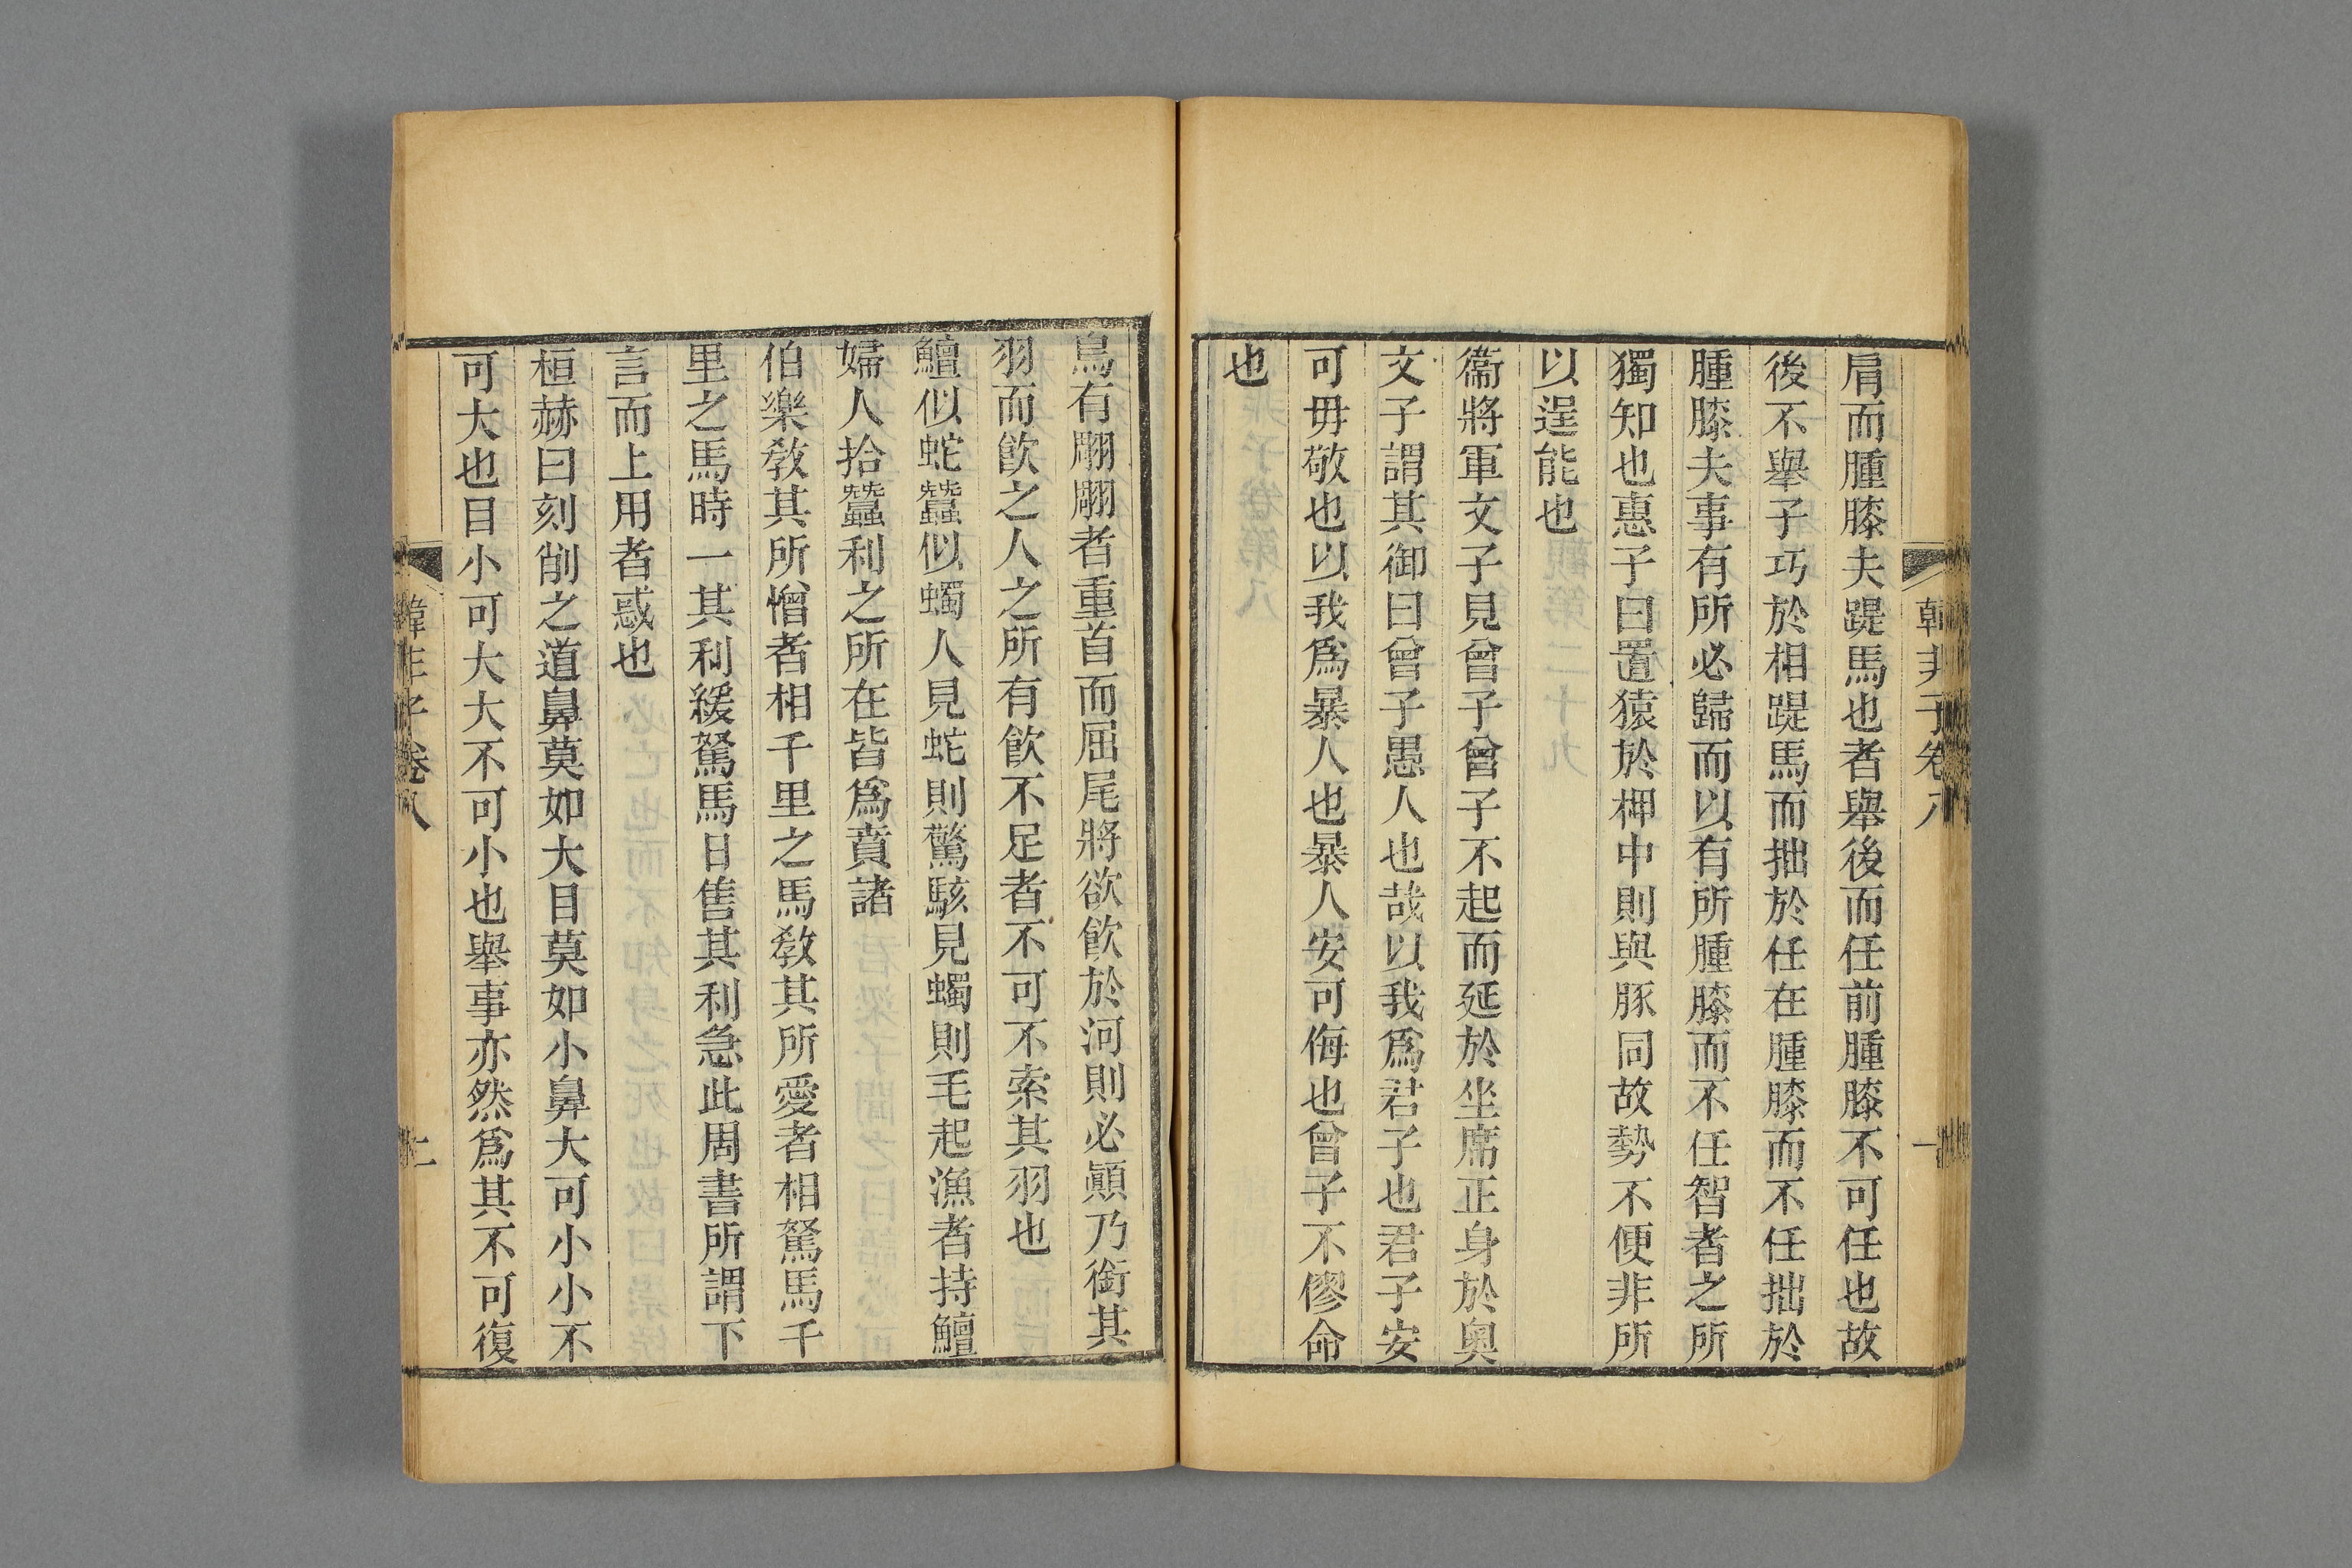 韓非子卷八 一
肩而腫膝夫踶馬也者舉後而任前腫膝不可任也故
後不舉子巧於相踶馬而拙於任在腫膝而不任拙於
腫膝夫事有所必歸而以有所腫膝而不任智者之所
獨知也惠子曰置猿於柙中則與豚同故勢不便非所
以逞能也
衞將軍文子見曾子曾子不起而延於坐席正身於奧
文子謂其御曰曾子愚人也哉以我爲君子也君子安
可毋敬也以我爲暴人也暴人安可侮也曾子不僇命
也
鳥有翢翢者重首而屈尾將欲飮於河則必顚乃銜其
羽而飮之人之所有飮不足者不可不索其羽也
鱣似蛇蠶似蠋人見蛇則驚駭見蠋則毛起漁者持鱣
婦人拾蠶利之所在皆爲賁諸
伯樂敎其所憎者相千里之馬敎其所愛者相駑馬千
里之馬時一其利緩駑馬日售其利急此周書所謂下
言而上用者惑也
桓赫曰刻削之道鼻莫如大目莫如小鼻大可小小不
可大也目小可大大不可小也舉事亦然爲其不可復
韓非子卷八